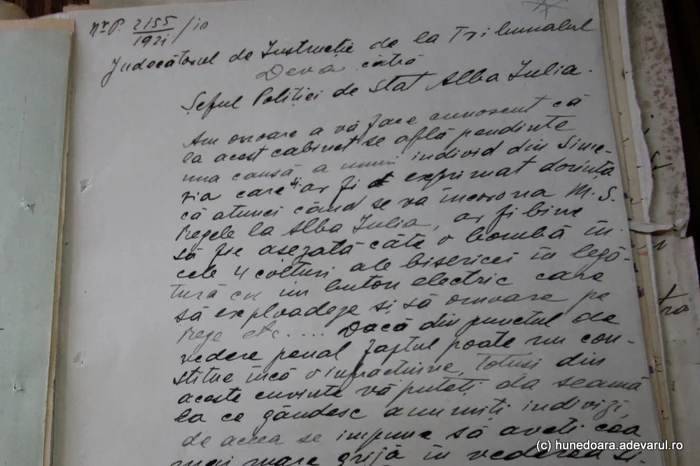 Nr P. 2155/1921 /10
Judecătorul de Instrucție de la Tribunalul
Deva către
Șeful Poliției de Stat Alba Iulia.
Am onoare a vă face cunoscut că
la acest cabinet se află pendinte
una cauză a unui individ din Sime-
ria care și-ar fi exprimat dorința
că atunci când se va încorona M.S.
Regele la Alba Iulia, ar fi bine
să fie asezată câte o bombă în
cele 4 colturi ale bisericei în legă-
tură cu un buton electric care
să explodeze și să omoare pe
Rege etc.... Dacă din punctul de
vedere penal faptul poate nu con-
stitue încă o infractiune, totusi din
aceste cuvinte vă puteti da seamă
la ce gândesc anumiți indivizi,
de aceea se impune să aveti cea
mai mare grijă în vederea si-
(c) hunedoara.adevarul.ro